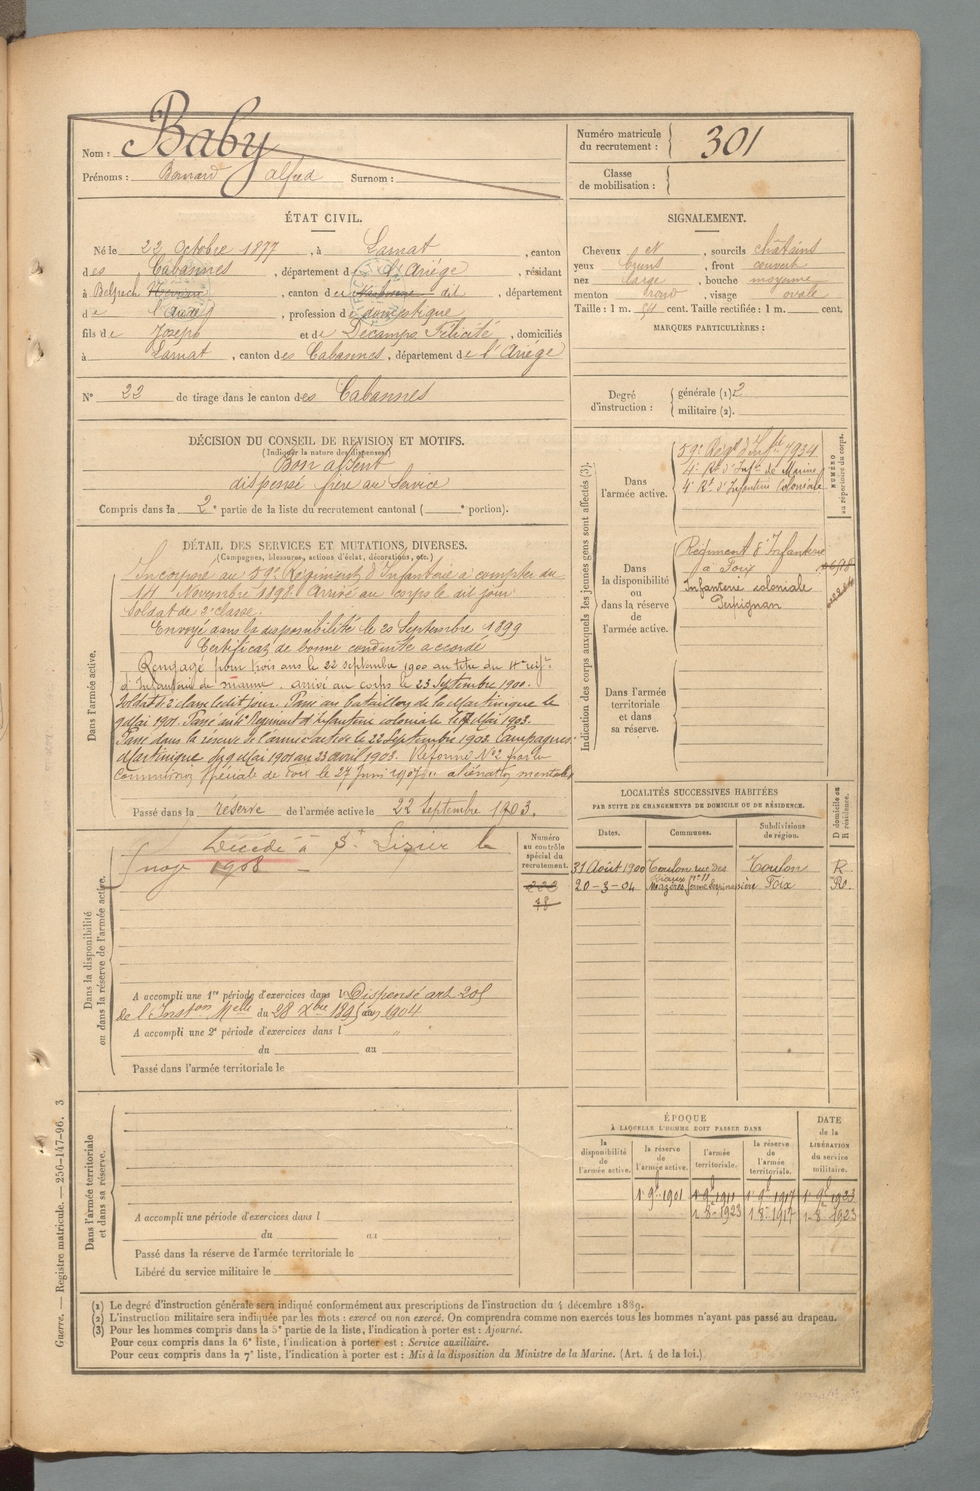 Nom : Baby
Prénoms : Bernard Alfred Surnom :
Numéro matricule du recrutement : 301
Classe de mobilisation :
ÉTAT CIVIL.
Né le 22 Octobre 1877, à Larnat, canton
des Cabannes, département de l'Ariége, résidant
à Belpech, canton du dit, département
de l'Aude, profession de domestique
fils de Joseph et de Décamps Félicité, domiciliés
à Larnat, canton des Cabannes, département de l'Ariége
N° 22 de tirage dans le canton des Cabannes
SIGNALEMENT.
Cheveux et, sourcils châtains
yeux bruns, front couvert
nez large, bouche moyenne
menton rond, visage ovale
Taille : 1 m. cent. Taille rectifiée : 1 m. cent.
MARQUES PARTICULIÈRES :
Degré d'instruction : générale (1) 2
militaire (2).
DÉCISION DU CONSEIL DE REVISION ET MOTIFS.
(Indiquer la nature des dispenses)
Bon absent
dispensé frère au Service
Compris dans la 2e partie de la liste du recrutement cantonal ( e portion).
DÉTAIL DES SERVICES ET MUTATIONS DIVERSES.
(Campagnes, blessures, actions d'éclat, décorations, etc.)
Dans l'armée active.
Incorporé au 59e Régiment d'Infanterie à compter du
14 Novembre 1898. Arrivé au corps le dit jour
soldat de 2e classe.
Envoyé dans la disponibilité le 20 Septembre 1899
Certificat de bonne conduite accordé
Rengagé pour trois ans le 22 septembre 1900 au titre du 4e régt
d'Infanterie de marine. arrivé au corps le 23 Septembre 1900.
Soldat de 2e classe ledit jour. Passé au bataillon de la Martinique le
9 Mai 1901. Passé au 4e Régiment d'Infanterie coloniale le 7 Mai 1903.
Passé dans la réserve de l'armée active le 22 Septembre 1903. Campagnes:
Martinique du 9 Mai 1901 au 23 avril 1903. Réformé N°2 par la
commission spéciale de Foix le 27 Juin 1907 aliénation mentale
Passé dans la réserve de l'armée active le 22 Septembre 1903.
Indication des corps auxquels les jeunes gens sont affectés (3).
NUMÉRO au répertoire du corps.
Dans l'armée active.
59e Régt d'Infie 7934
4e Rt d'Infie de Marine
4e Rt d'Infanterie Coloniale
Dans la disponibilité ou dans la réserve de l'armée active.
Régiment d'Infanterie
à Foix
Infanterie coloniale
Perpignan
Dans l'armée territoriale et dans sa réserve.
LOCALITÉS SUCCESSIVES HABITÉES
PAR SUITE DE CHANGEMENTS DE DOMICILE OU DE RÉSIDENCE.
D domicile ou R résidence.
Dates. Communes. Subdivisions de région.
31 Août 1900 Toulon rue des N°11 Toulon R
20-3-04 Mazères, ferme Foix R.
Dans la disponibilité ou dans la réserve de l'armée active.
Décédé à St Lizier le
1908
Numéro au contrôle spécial du recrutement.
A accompli une 1re période d'exercices dans l Dispensé art. 205
de l'Inston Melle du 28 Xbre 1895 en 1904
A accompli une 2e période d'exercices dans l "
du au
Passé dans l'armée territoriale le
Dans l'armée territoriale et dans sa réserve.
A accompli une période d'exercices dans l
du au
Passé dans la réserve de l'armée territoriale le
Libéré du service militaire le
ÉPOQUE
À LAQUELLE L'HOMME DOIT PASSER DANS
la disponibilité de l'armée active. la réserve de l'armée active. l'armée territoriale. la réserve de l'armée territoriale.
DATE de la LIBÉRATION du service militaire.
1 9b 1901 1 9b 1911 1 9b 1917 1 9b 1923
1 8b 1923 1 8b 1917 1 8b 1923
Guerre. — Registre matricule. — 256-147-96. 3
(1) Le degré d'instruction générale sera indiqué conformément aux prescriptions de l'instruction du 4 décembre 1889.
(2) L'instruction militaire sera indiquée par les mots : exercé ou non exercé. On comprendra comme non exercés tous les hommes n'ayant pas passé au drapeau.
(3) Pour les hommes compris dans la 5e partie de la liste, l'indication à porter est : Ajourné.
Pour ceux compris dans la 6e liste, l'indication à porter est : Service auxiliaire.
Pour ceux compris dans la 7e liste, l'indication à porter est : Mis à la disposition du Ministre de la Marine. (Art. 4 de la loi.)